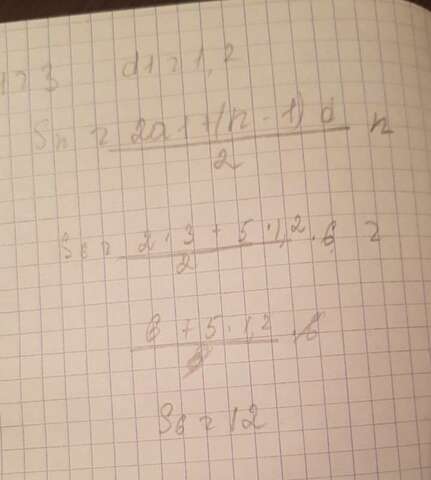 1 = 3 d1 = 1,2
Sn = (2a1 + (n - 1) d) / 2 n
S6 = (2 · 3 + 5 · 1,2) / 2 · 6 =
(6 + 5 · 1,2) / 2 · 6
S6 = 12